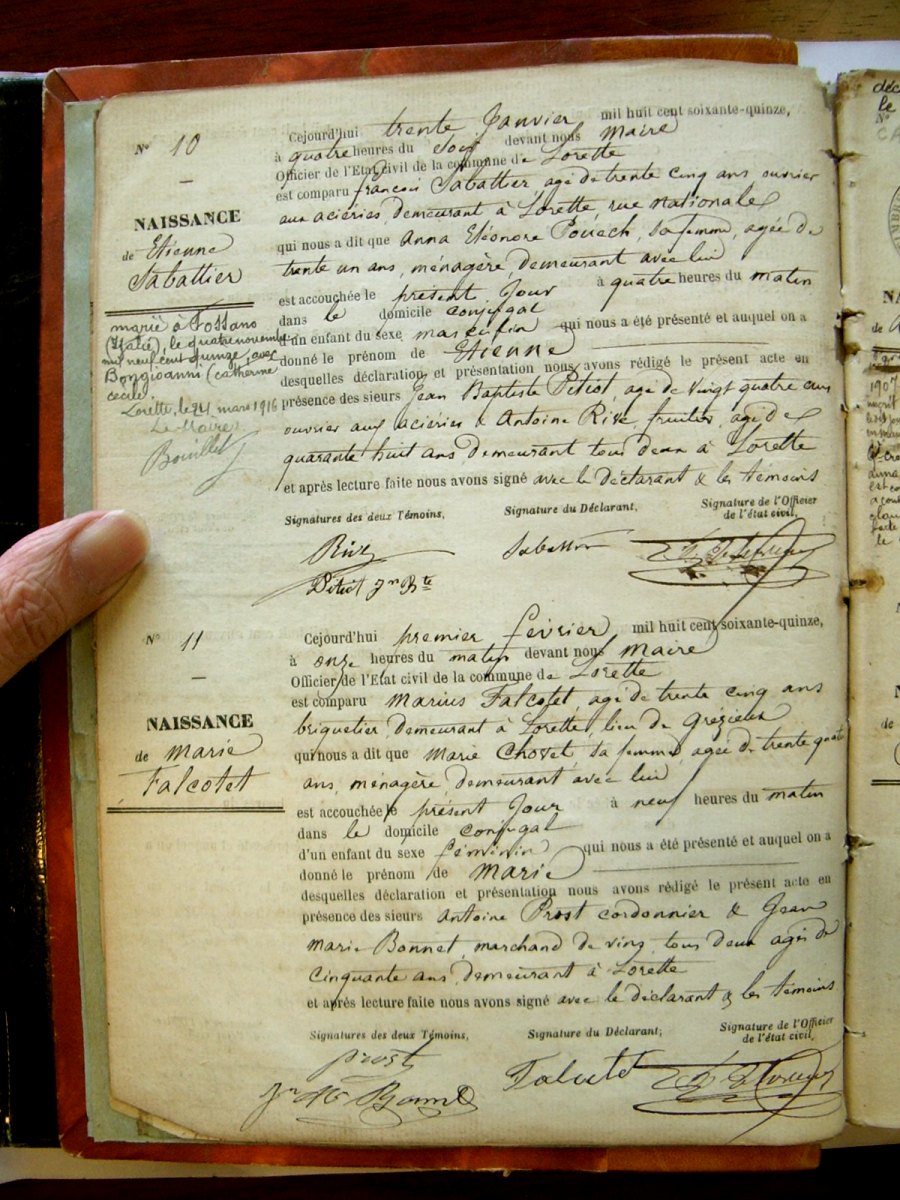 N° 10
—
NAISSANCE
de Etienne
Sabattier
marié à Fossano
(Italie), le quatre novembre
mil neuf cent quinze, avec
Bongioanni (catherine
cécile)
Lorette, le 24 mars 1916
Le Maire
Bouillet
Cejourd'hui trente Janvier mil huit cent soixante-quinze,
à quatre heures du soir devant nous Maire
Officier de l'Etat civil de la commune de Lorette
est comparu françois Sabattier, agé de trente cinq ans ouvrier
aux aciéries, demeurant à Lorette, rue nationale
qui nous a dit que Anna Eléonore Pouech, sa femme, agée de
trente un ans, ménagère, demeurant avec lui
est accouchée le présent Jour à quatre heures du matin
dans le domicile conjugal
d'un enfant du sexe masculin qui nous a été présenté et auquel on a
donné le prénom de Etienne
desquelles déclaration et présentation nous avons rédigé le présent acte en
présence des sieurs Jean Baptiste Petiot, agé de vingt quatre ans
ouvrier aux aciéries & Antoine Rive, fruitier, agé de
quarante huit ans, demeurant tous deux à Lorette
et après lecture faite nous avons signé avec le déclarant & les témoins
Signatures des deux Témoins,
Signature du Déclarant,
Signature de l'Officier
de l'état civil,
Rive
Sabattier
Petiot Jn Bte
N° 11
—
NAISSANCE
de Marie
Falcotet
Cejourd'hui premier février mil huit cent soixante-quinze,
à onze heures du matin devant nous Maire
Officier de l'Etat civil de la commune de Lorette
est comparu Marius Falcotet, agé de trente cinq ans
briquetier, demeurant à Lorette, lieu de Grézieux
qui nous a dit que Marie Chovet, sa femme, agée de trente quatre
ans, ménagère, demeurant avec lui
est accouchée le présent Jour à neuf heures du matin
dans le domicile conjugal
d'un enfant du sexe féminin qui nous a été présenté et auquel on a
donné le prénom de Marie
desquelles déclaration et présentation nous avons rédigé le présent acte en
présence des sieurs Antoine Prost cordonnier & Jean
Marie Bonnet, marchand de vins, tous deux agés de
cinquante ans, demeurant à Lorette
et après lecture faite nous avons signé avec le déclarant & les témoins
Signatures des deux Témoins,
Signature du Déclarant;
Signature de l'Officier
de l'état civil,
prost
Falcotet